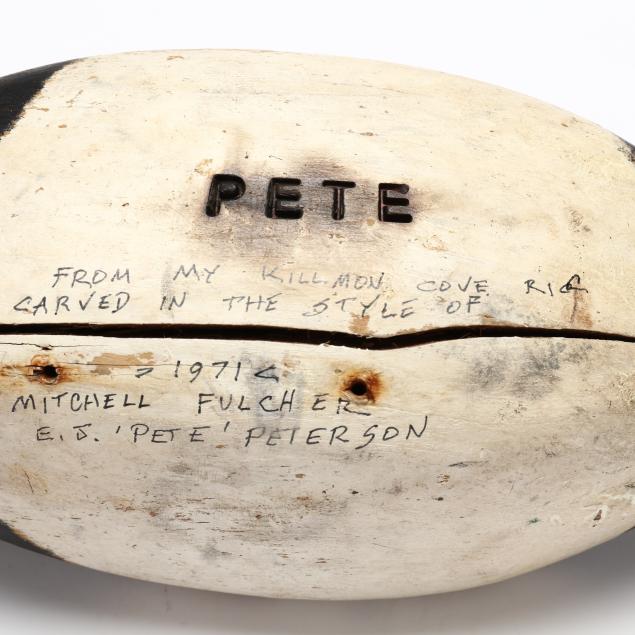 PETE
FROM MY KILLMON COVE RIG
CARVED IN THE STYLE OF
> 1971 <
MITCHELL FULCHER
E.J. 'PETE' PETERSON